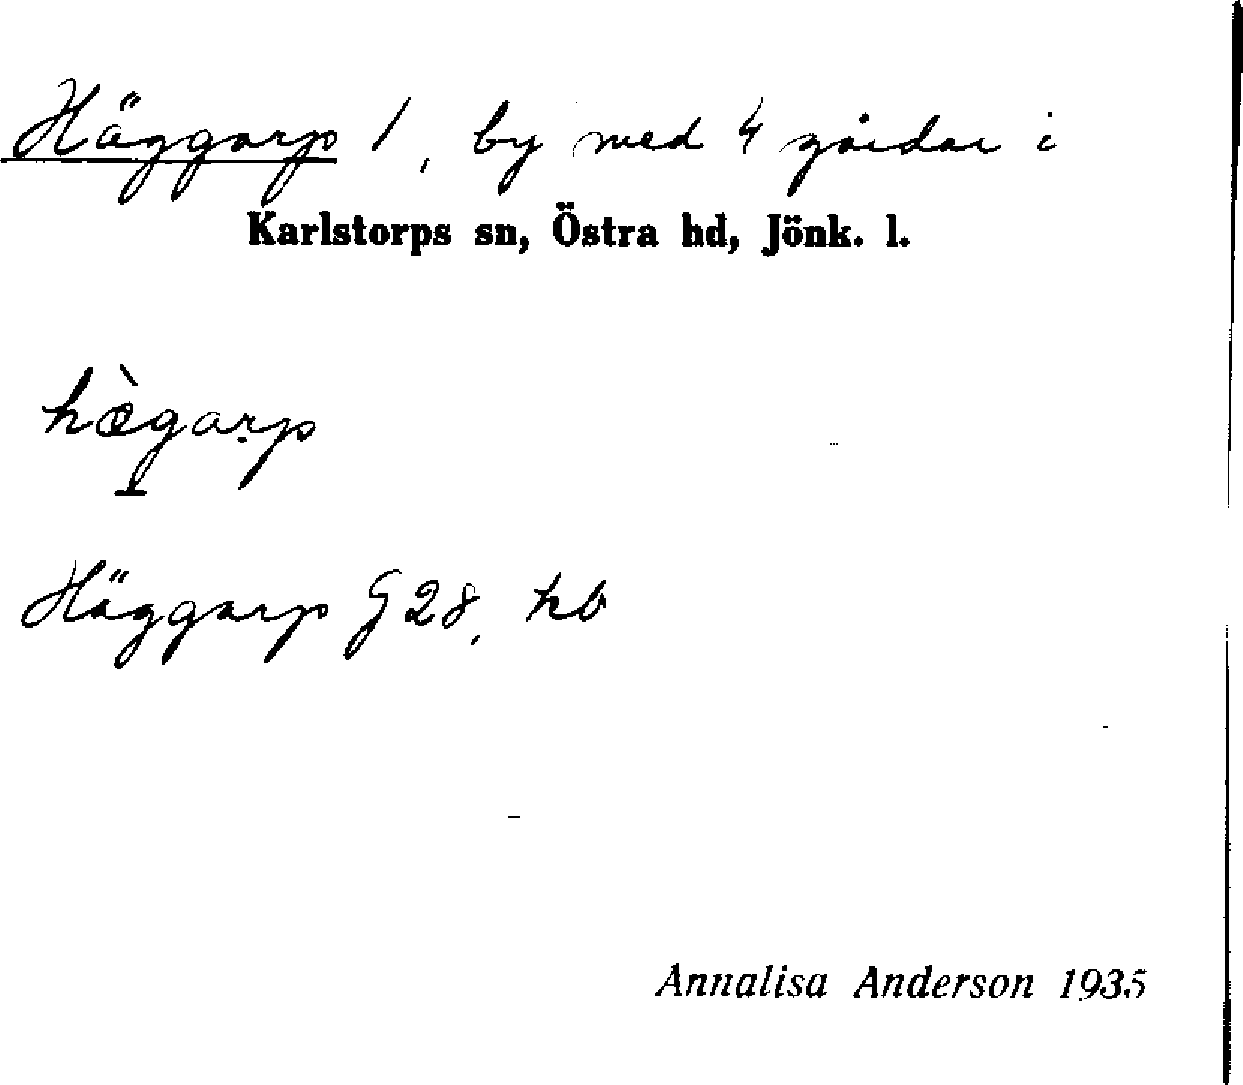 Häggarp 1, by med 4 gårdar i
Karlstorps sn, Östra hd, Jönk. l.
hæ̀gaṛp
Häggarp G 28, hb
Annalisa Anderson 1935